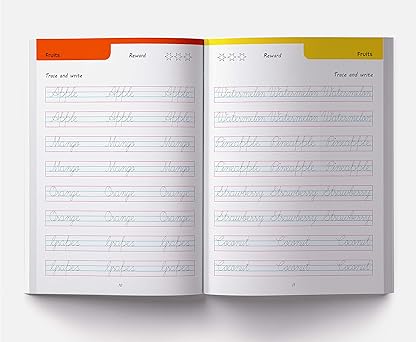 Fruits Reward
Trace and write
Apple Apple Apple
Apple Apple Apple
Mango Mango Mango
Mango Mango Mango
Orange Orange Orange
Orange Orange Orange
Grapes Grapes Grapes
Grapes Grapes Grapes
Reward Fruits
Trace and write
Watermelon Watermelon Watermelon
Watermelon Watermelon Watermelon
Pineapple Pineapple Pineapple
Pineapple Pineapple Pineapple
Strawberry Strawberry Strawberry
Strawberry Strawberry Strawberry
Coconut Coconut Coconut
Coconut Coconut Coconut